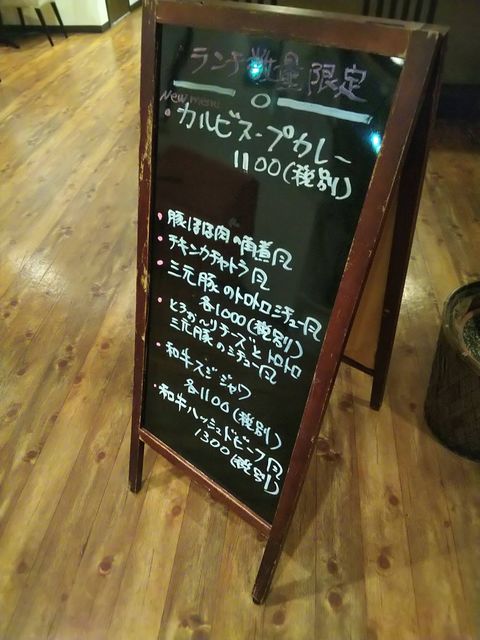 ランチ数量限定
New menu
・カルビスープカレー
1100(税別)
・豚ほほ肉の角煮風
・チキンカチャトラ風
・三元豚のトロトロシチュー風
各1000(税別)
・とろ〜りチーズとトロトロ
三元豚のシチュー風
・和牛スジジャワ
各1100(税別)
・和牛ハッシュドビーフ風
1300(税別)